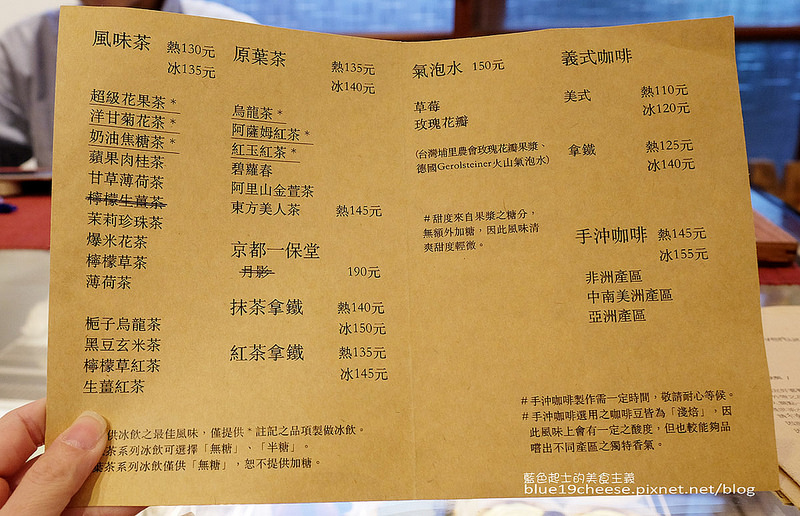 風味茶 熱130元
冰135元
超級花果茶 *
洋甘菊花茶 *
奶油焦糖茶 *
蘋果肉桂茶
甘草薄荷茶
檸檬生薑茶
茉莉珍珠茶
爆米花茶
檸檬草茶
薄荷茶
梔子烏龍茶
黑豆玄米茶
檸檬草紅茶
生薑紅茶
原葉茶 熱135元
冰140元
烏龍茶 *
阿薩姆紅茶 *
紅玉紅茶 *
碧蘿春
阿里山金萱茶
東方美人茶 熱145元
京都一保堂
月影 190元
抹茶拿鐵 熱140元
冰150元
紅茶拿鐵 熱135元
冰145元
供冰飲之最佳風味,僅提供 * 註記之品項製做冰飲。
茶系列冰飲可選擇「無糖」、「半糖」。
茶系列冰飲僅供「無糖」,恕不提供加糖。
氣泡水 150元
草莓
玫瑰花瓣
(台灣埔里農會玫瑰花瓣果漿、
德國Gerolsteiner火山氣泡水)
#甜度來自果漿之糖分,
無額外加糖,因此風味清
爽甜度輕微。
義式咖啡
美式 熱110元
冰120元
拿鐵 熱125元
冰140元
手沖咖啡 熱145元
冰155元
非洲產區
中南美洲產區
亞洲產區
#手沖咖啡製作需一定時間,敬請耐心等候。
#手沖咖啡選用之咖啡豆皆為「淺焙」,因
此風味上會有一定之酸度,但也較能夠品
嚐出不同產區之獨特香氣。
藍色起士的美食主義
blue19cheese.pixnet.net/blog